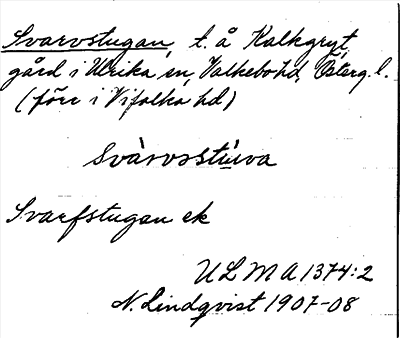 Svarvstugan, t. å Kalkgryt,
gård i Ulrika sn, Valkebo hd, Österg. l.
(förr i Vifolka hd)
svàrvsstùva
Svarfstugan ek
ULMA 1374:2
N. Lindqvist 1907-08